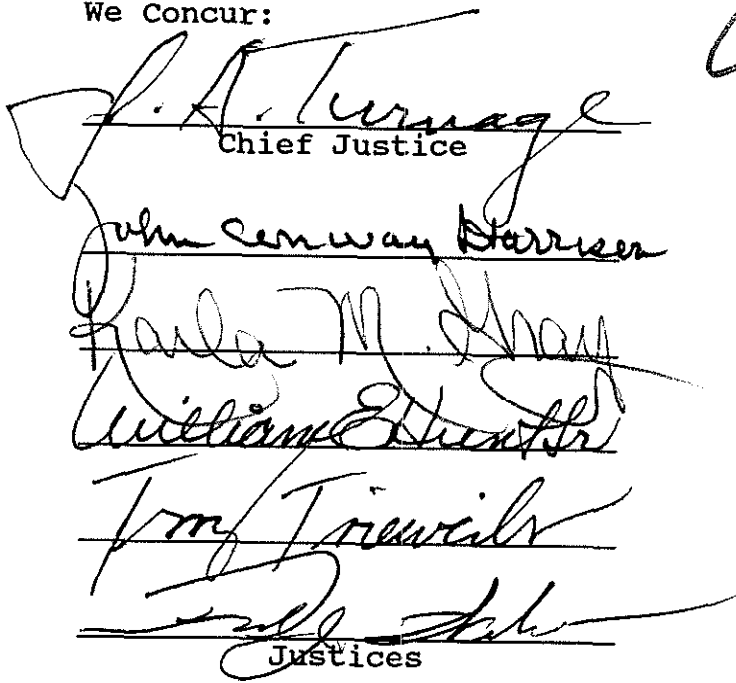 We Concur:
J. A. Turnage
Chief Justice
John Conway Harrison
Karla M. Gray
William E Hunt Sr
Terry Trieweiler
Justices